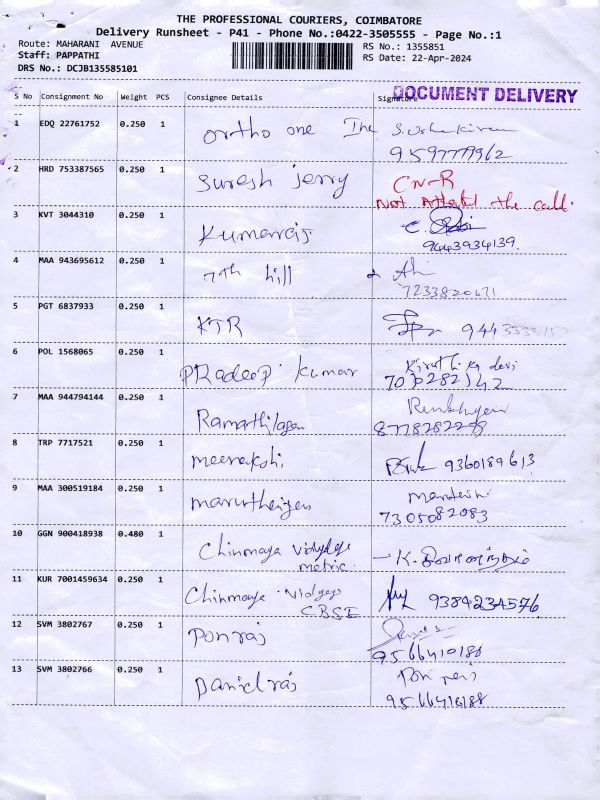 THE PROFESSIONAL COURIERS, COIMBATORE
Delivery Runsheet - P41 - Phone No.:0422-3505555 - Page No.:1
Route: MAHARANI AVENUE RS No.: 1355851
Staff: PAPPATHI RS Date: 22-Apr-2024
DRS No.: DCJB135585101
S No Consignment No Weight PCS Consignee Details Signature
DOCUMENT DELIVERY
1 EDQ 22761752 0.250 1 Ortho one The
2 HRD 753387565 0.250 1 Suresh jerry CN-R
Not the call.
3 KVT 3044310 0.250 1 Kumararaj
9443934139.
4 MAA 943695612 0.250 1 7th hill
7233820671
5 PGT 6837933 0.250 1 KTR 944
6 POL 1568065 0.250 1 Pradeep. Kumar Kiruthika devi
7 MAA 944794144 0.250 1 Ramathilagam
8778282298
8 TRP 7717521 0.250 1 meenakshi 9360189613
9 MAA 300519184 0.250 1
7305082083
10 GGN 900418938 0.480 1 Chinmaya Vidyalaya
metric.
11 KUR 7001459634 0.250 1 Chinmaya. Vidyaya 9384234576
CBSE
12 SVM 3802767 0.250 1 Ponraj
9566410188
13 SVM 3802766 0.250 1 Danielraj Ponraj
9566410188